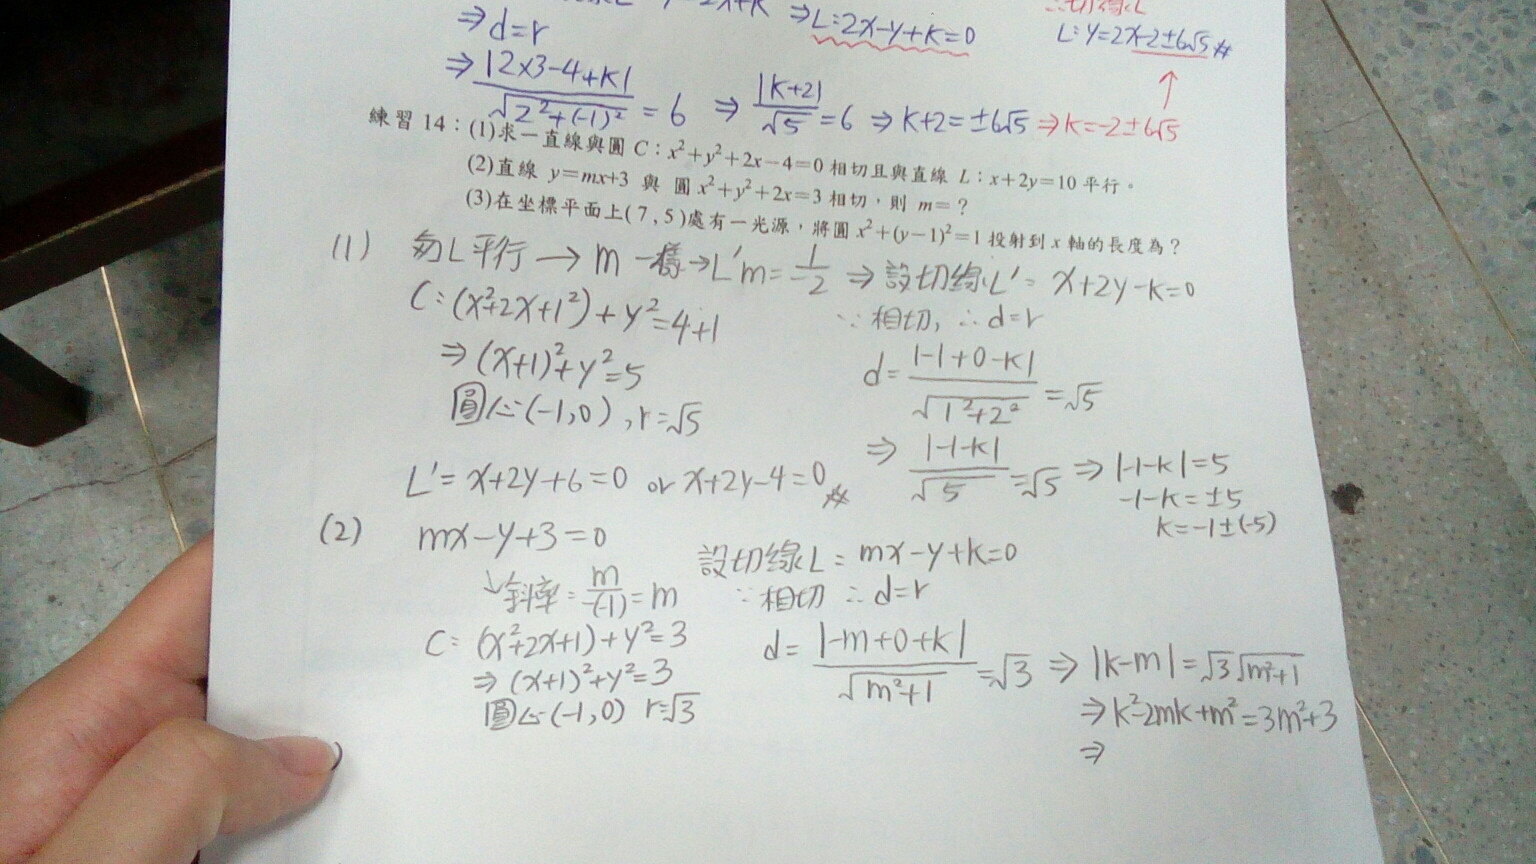 ⇒L:2x-y+k=0
⇒d=r
L:y=2x-2±6√5
⇒|2×3-4+k|/√2²+(-1)²=6 ⇒|k+2|/√5=6 ⇒k+2=±6√5 ⇒k=-2±6√5
練習14:(1)求一直線與圓 C:x²+y²+2x-4=0 相切且與直線 L:x+2y=10 平行。
(2)直線 y=mx+3 與 圓 x²+y²+2x=3 相切,則 m=?
(3)在坐標平面上(7,5)處有一光源,將圓 x²+(y-1)²=1 投射到 x 軸的長度為?
(1) L平行→m一樣→L'm=1/-2 ⇒設切線L'= x+2y-k=0
C:(x²+2x+1²)+y²=4+1
∵相切, ∴d=r
⇒(x+1)²+y²=5
d=|-1+0-k|/√1²+2²=√5
圓心(-1,0),r=√5
⇒|-1-k|/√5=√5 ⇒|-1-k|=5
-1-k=±5
k=-1±(-5)
L'=x+2y+6=0 or x+2y-4=0
(2) mx-y+3=0
設切線L=mx-y+k=0
↘斜率=m/-(-1)=m
∵相切 ∴d=r
C:(x²+2x+1)+y²=3
⇒(x+1)²+y²=3
圓心(-1,0) r=√3
d=|-m+0+k|/√m²+1=√3 ⇒|k-m|=√3√m²+1
⇒k²-2mk+m²=3m²+3
⇒